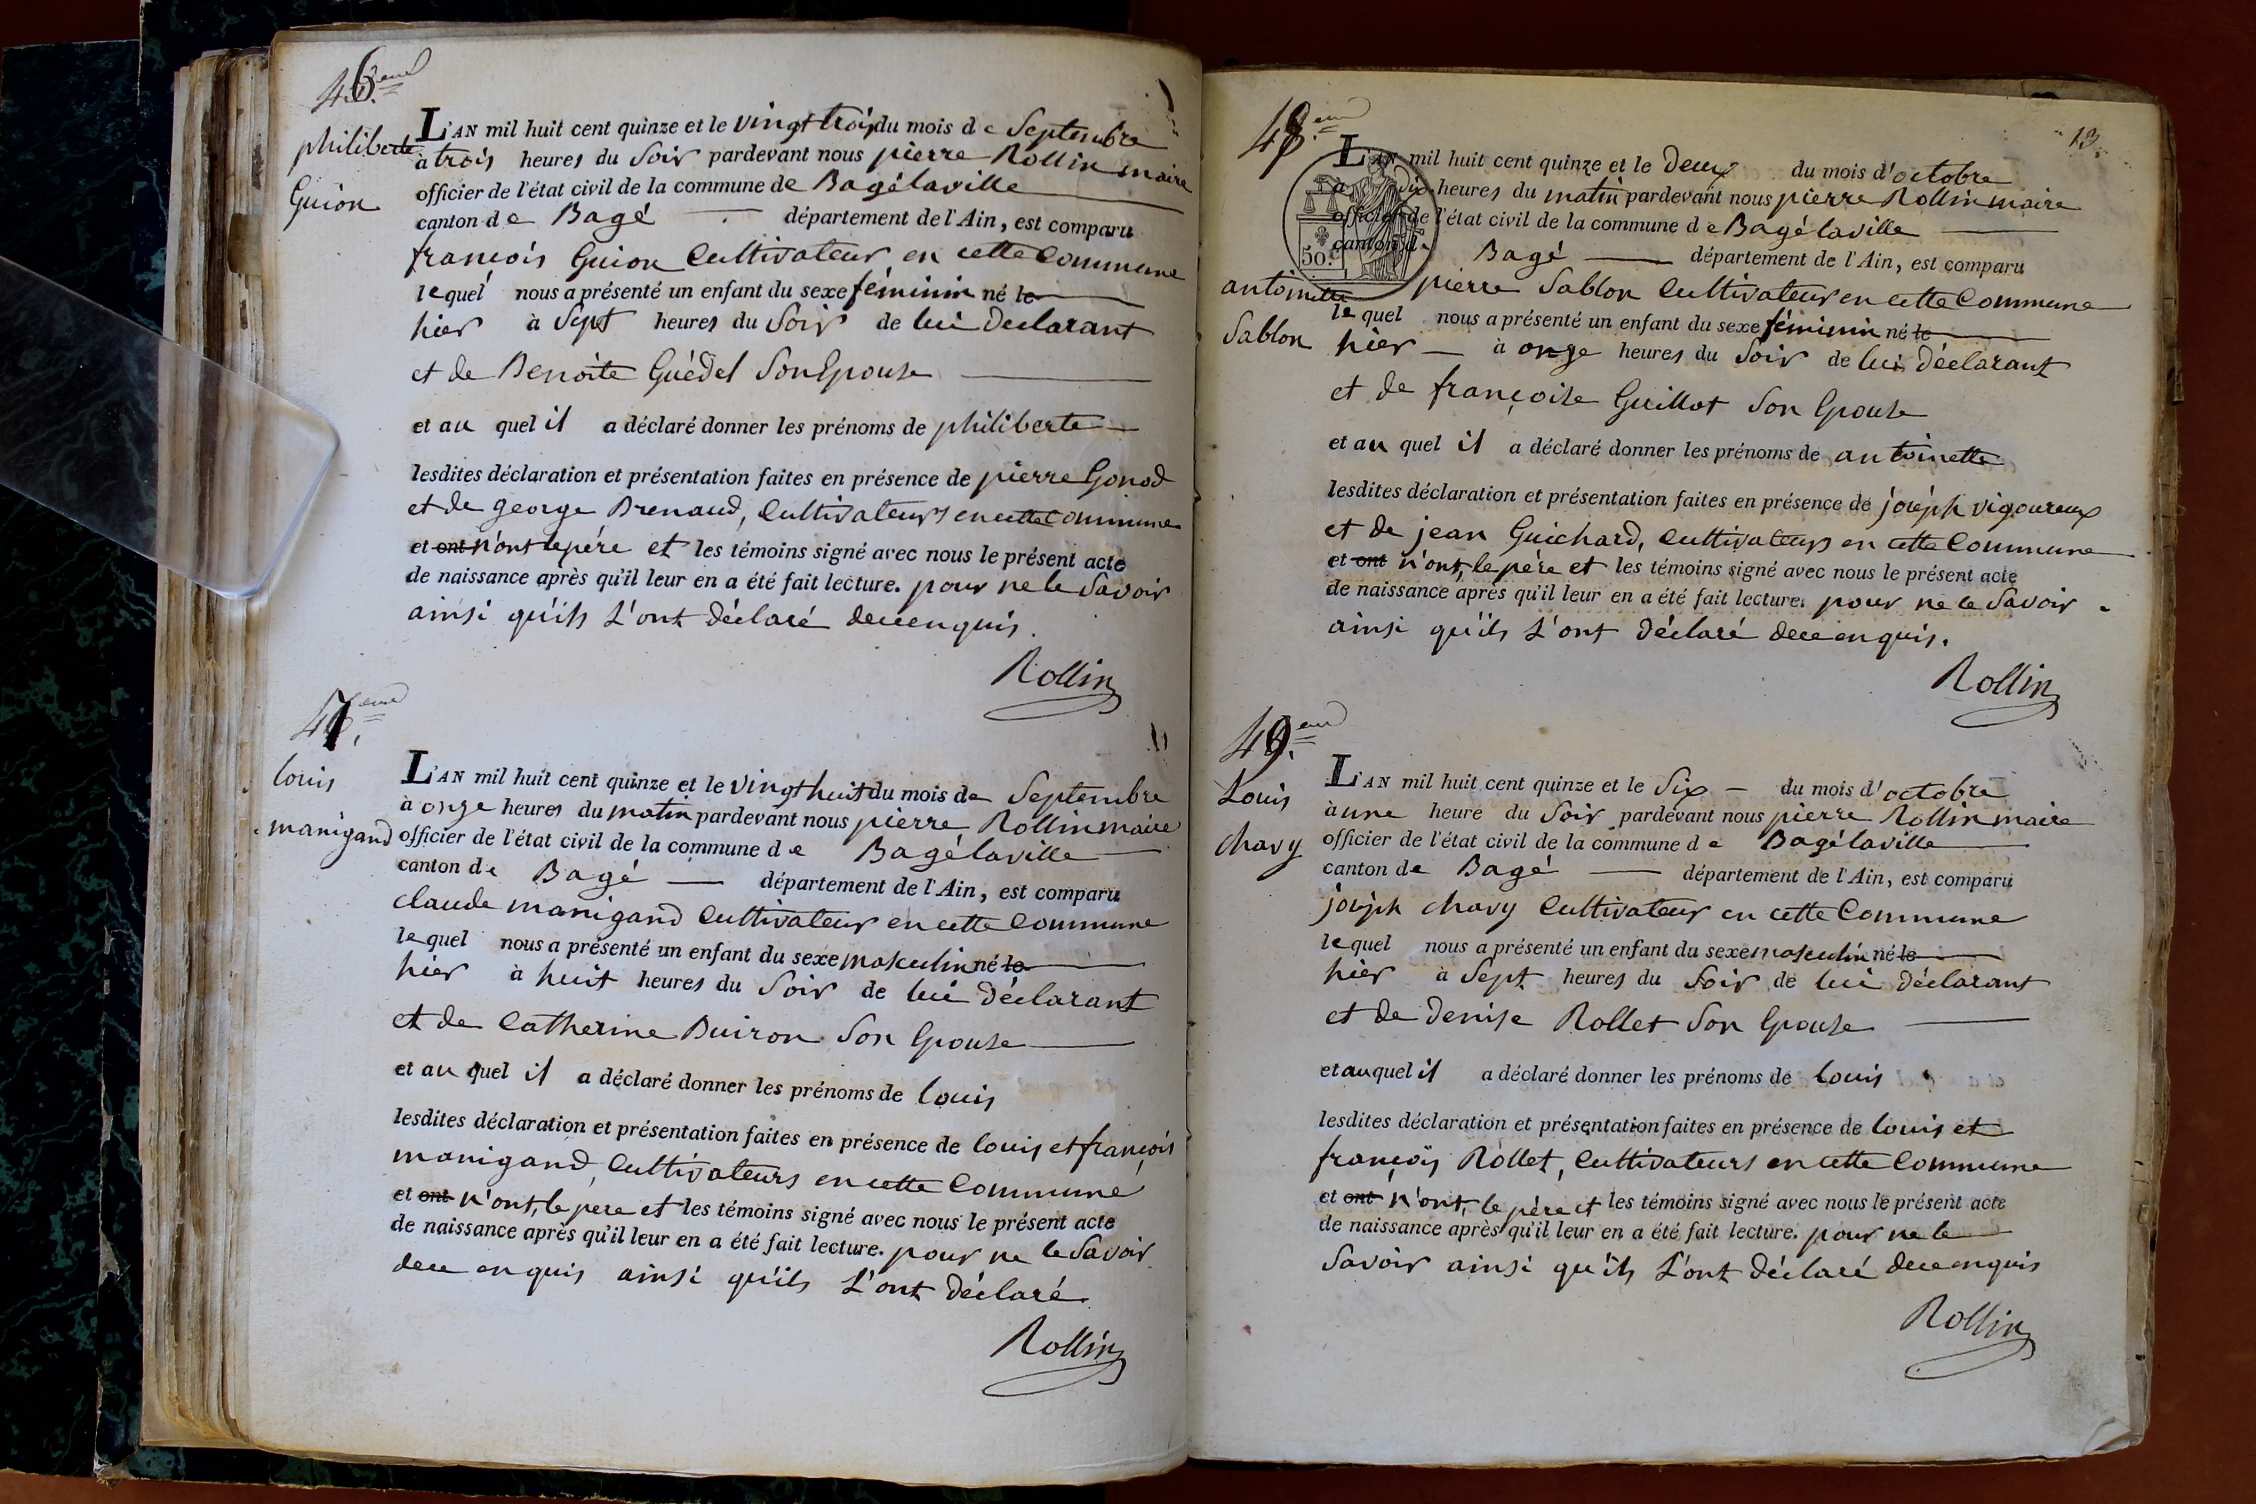 46.eme
philiberte
Guion
L'AN mil huit cent quinze et le vingt trois du mois de Septembre
à trois heures du Soir pardevant nous pierre Rollin maire
officier de l'état civil de la commune de Bagélaville
canton de Bagé département de l'Ain, est comparu
francois Guion Cultivateur en cette Commune
lequel nous a présenté un enfant du sexe féminin né le
hier à Sept heures du Soir de lui Declarant
et de Benoite Guédel Son Epouse
et au quel il a déclaré donner les prénoms de philiberte
lesdites déclaration et présentation faites en présence de pierre Gonod
et de george Brenaud, Cultivateurs en cette Commune
et ont n'ont le pére et les témoins signé avec nous le présent acte
de naissance après qu'il leur en a été fait lecture. pour ne le Savoir
ainsi qu'ils L'ont déclaré dece enquis.
Rollin
47.eme
louis
manigand
L'AN mil huit cent quinze et le vingt huit du mois de Septembre
à onze heures du matin pardevant nous pierre Rollin maire
officier de l'état civil de la commune de Bagélaville
canton de Bagé département de l'Ain, est comparu
claude manigand Cultivateur en cette Commune
lequel nous a présenté un enfant du sexe masculin né le
hier à huit heures du Soir de lui Déclarant
et de Catherine Buiron Son Epouse
et au quel il a déclaré donner les prénoms de louis
lesdites déclaration et présentation faites en présence de louis et françois
manigand, Cultivateurs en cette Commune
et ont n'ont, le pere et les témoins signé avec nous le présent acte
de naissance après qu'il leur en a été fait lecture. pour ne le Savoir
dece enquis ainsi qu'ils L'ont déclaré
Rollin
48.eme
13.
antoinette
Sablon
50.c
L'AN mil huit cent quinze et le Deux du mois d'octobre
à six heures du matin pardevant nous pierre Rollin maire
officier de l'état civil de la commune de Bagélaville
canton de Bagé département de l'Ain, est comparu
pierre Sablon Cultivateur en cette Commune
lequel nous a présenté un enfant du sexe féminin né le
hier à onze heures du Soir de lui Déclarant
et de françoise Guillot Son Epouse
et au quel il a déclaré donner les prénoms de antoinette
lesdites déclaration et présentation faites en présence de joseph vigoureux
et de jean Guichard, Cultivateurs en cette Commune
et ont n'ont, le père et les témoins signé avec nous le présent acte
de naissance après qu'il leur en a été fait lecture. pour ne le Savoir
ainsi qu'ils L'ont déclaré dece enquis.
Rollin
49.eme
Louis
chavy
L'AN mil huit cent quinze et le Six du mois d'octobre
à une heure du Soir pardevant nous pierre Rollin maire
officier de l'état civil de la commune de Bagélaville
canton de Bagé département de l'Ain, est comparu
joseph chavy Cultivateur en cette Commune
lequel nous a présenté un enfant du sexe masculin né le
hier à Sept heures du Soir de lui déclarant
et de Denise Rollet Son Epouse
et au quel il a déclaré donner les prénoms de louis
lesdites déclaration et présentation faites en présence de louis et
françois Rollet, Cultivateurs en cette Commune
et ont n'ont, le père et les témoins signé avec nous le présent acte
de naissance après qu'il leur en a été fait lecture. pour ne le
Savoir ainsi qu'ils L'ont déclaré dece enquis
Rollin